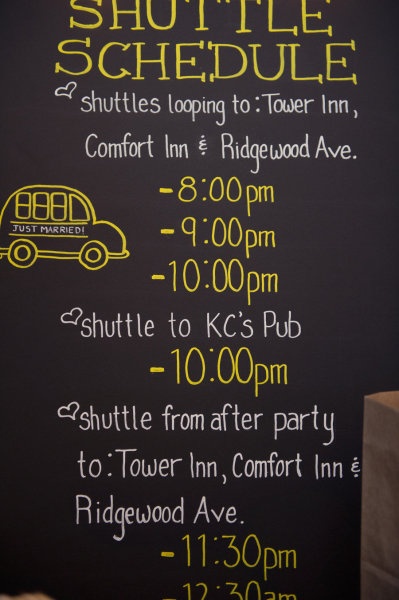 SHUTTLE
SCHEDULE
shuttles looping to: Tower Inn,
Comfort Inn & Ridgewood Ave.
-8:00pm
JUST MARRIED!
-9:00pm
-10:00pm
shuttle to KC's Pub
-10:00pm
shuttle from after party
to: Tower Inn, Comfort Inn &
Ridgewood Ave.
-11:30pm
-12:30am